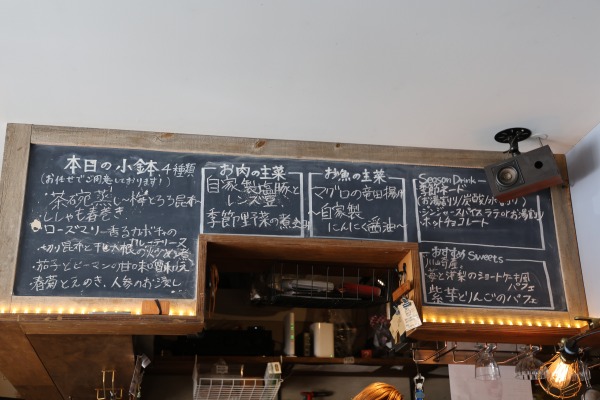 本日の小鉢 4種類
(お任せでご用意しております!)
茶碗蒸し〜梅ととろろ昆布〜
ししゃも春巻き
ローズマリー香るカボチャの
切り昆布と
茄子とピーマンの甘味噌
春菊とえのき、人参のおひたし
お肉の主菜
自家製塩豚と
レンズ豆
季節野菜の煮込み
お魚の主菜
マグロの竜田揚げ
〜自家製
にんにく醤油〜
Season Drink
季節モネード
(お湯割り/炭酸割り/
・ジンジャースパイスラテ
・ホットチョコレート
おすすめSweets
山崎産
苺と洋梨のショートケーキ風
パフェ
紫芋とりんごのパフェ